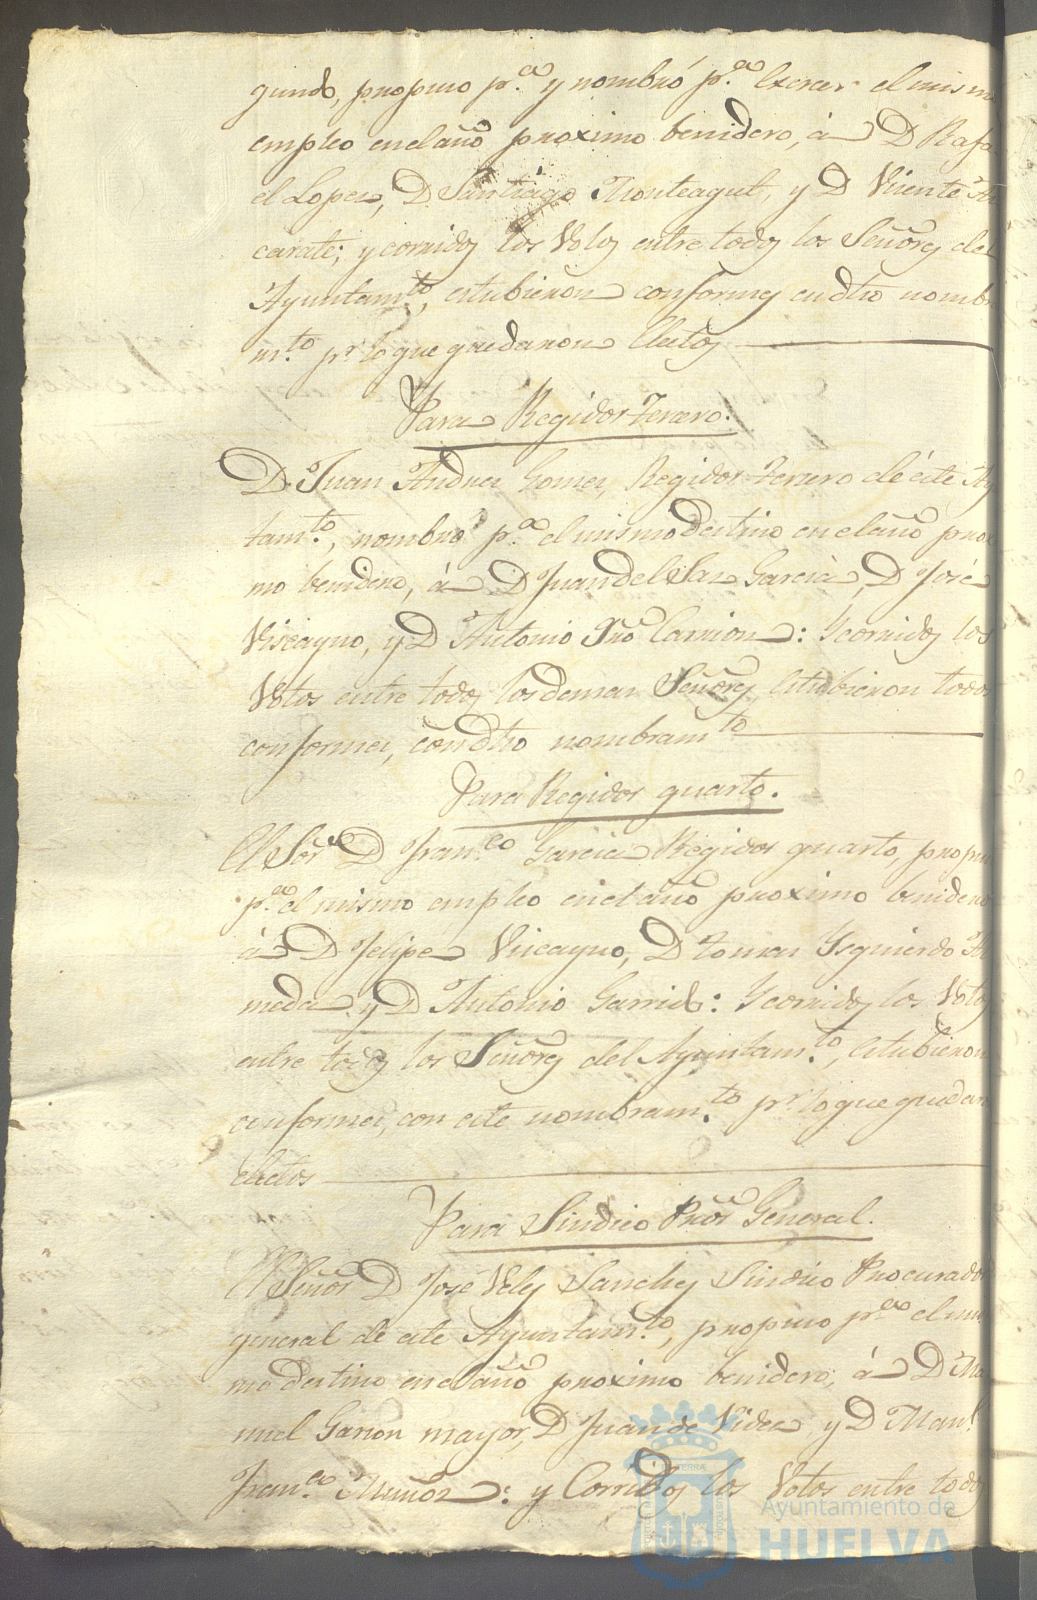 gundo, propuso p.ra y nombró p.ra Exercer el mismo
empleo en el año proximo benidero, á D Rafa
el Lopez, D Santiago Monteagut, y D Vicente
carate; y corridos los Votos entre todos los Señores de
Ayuntam.to, estubieron conformes en dho nombr
m.to pr lo que quedaron Electos
Para Regidor Tercero.
D. Juan Andres Gomez, Regidor tercero de este Ay
tam.to, nombró p.ra el mismo destino en el año proxi
mo benidero, á D Juan del Garcia, D José
Viscayno, y D Antonio Carrion: Y corridos los
Votos entre todos los demas Señores, Estubieron todos
conformes, con dho nombram.to
Para Regidor quarto.
El Sor D Fran.co Garcia Regidor quarto, propuso
p.ra el mismo empleo en el año proximo benidero
á D Felipe Viscayno, D Tomas Ysquierdo
meda y D Antonio Garrido: Y corridos los Votos
entre todos los Señores del Ayuntam.to, Estubieron
conformes, con este nombram.to pr lo que quedaron
electos
Para Sindico Pror General.
El Señor D José Velez Sanchez Sindico Procurador
general de este Ayuntam.to, propuso p.ra el mis
mo destino en el año proximo benidero, á D Ma
nuel Garzon mayor, D Juan de Vides y D Man.l
Fran.co Muñoz: y Corridos los Votos entre todos
Ayuntamiento de
HUELVA